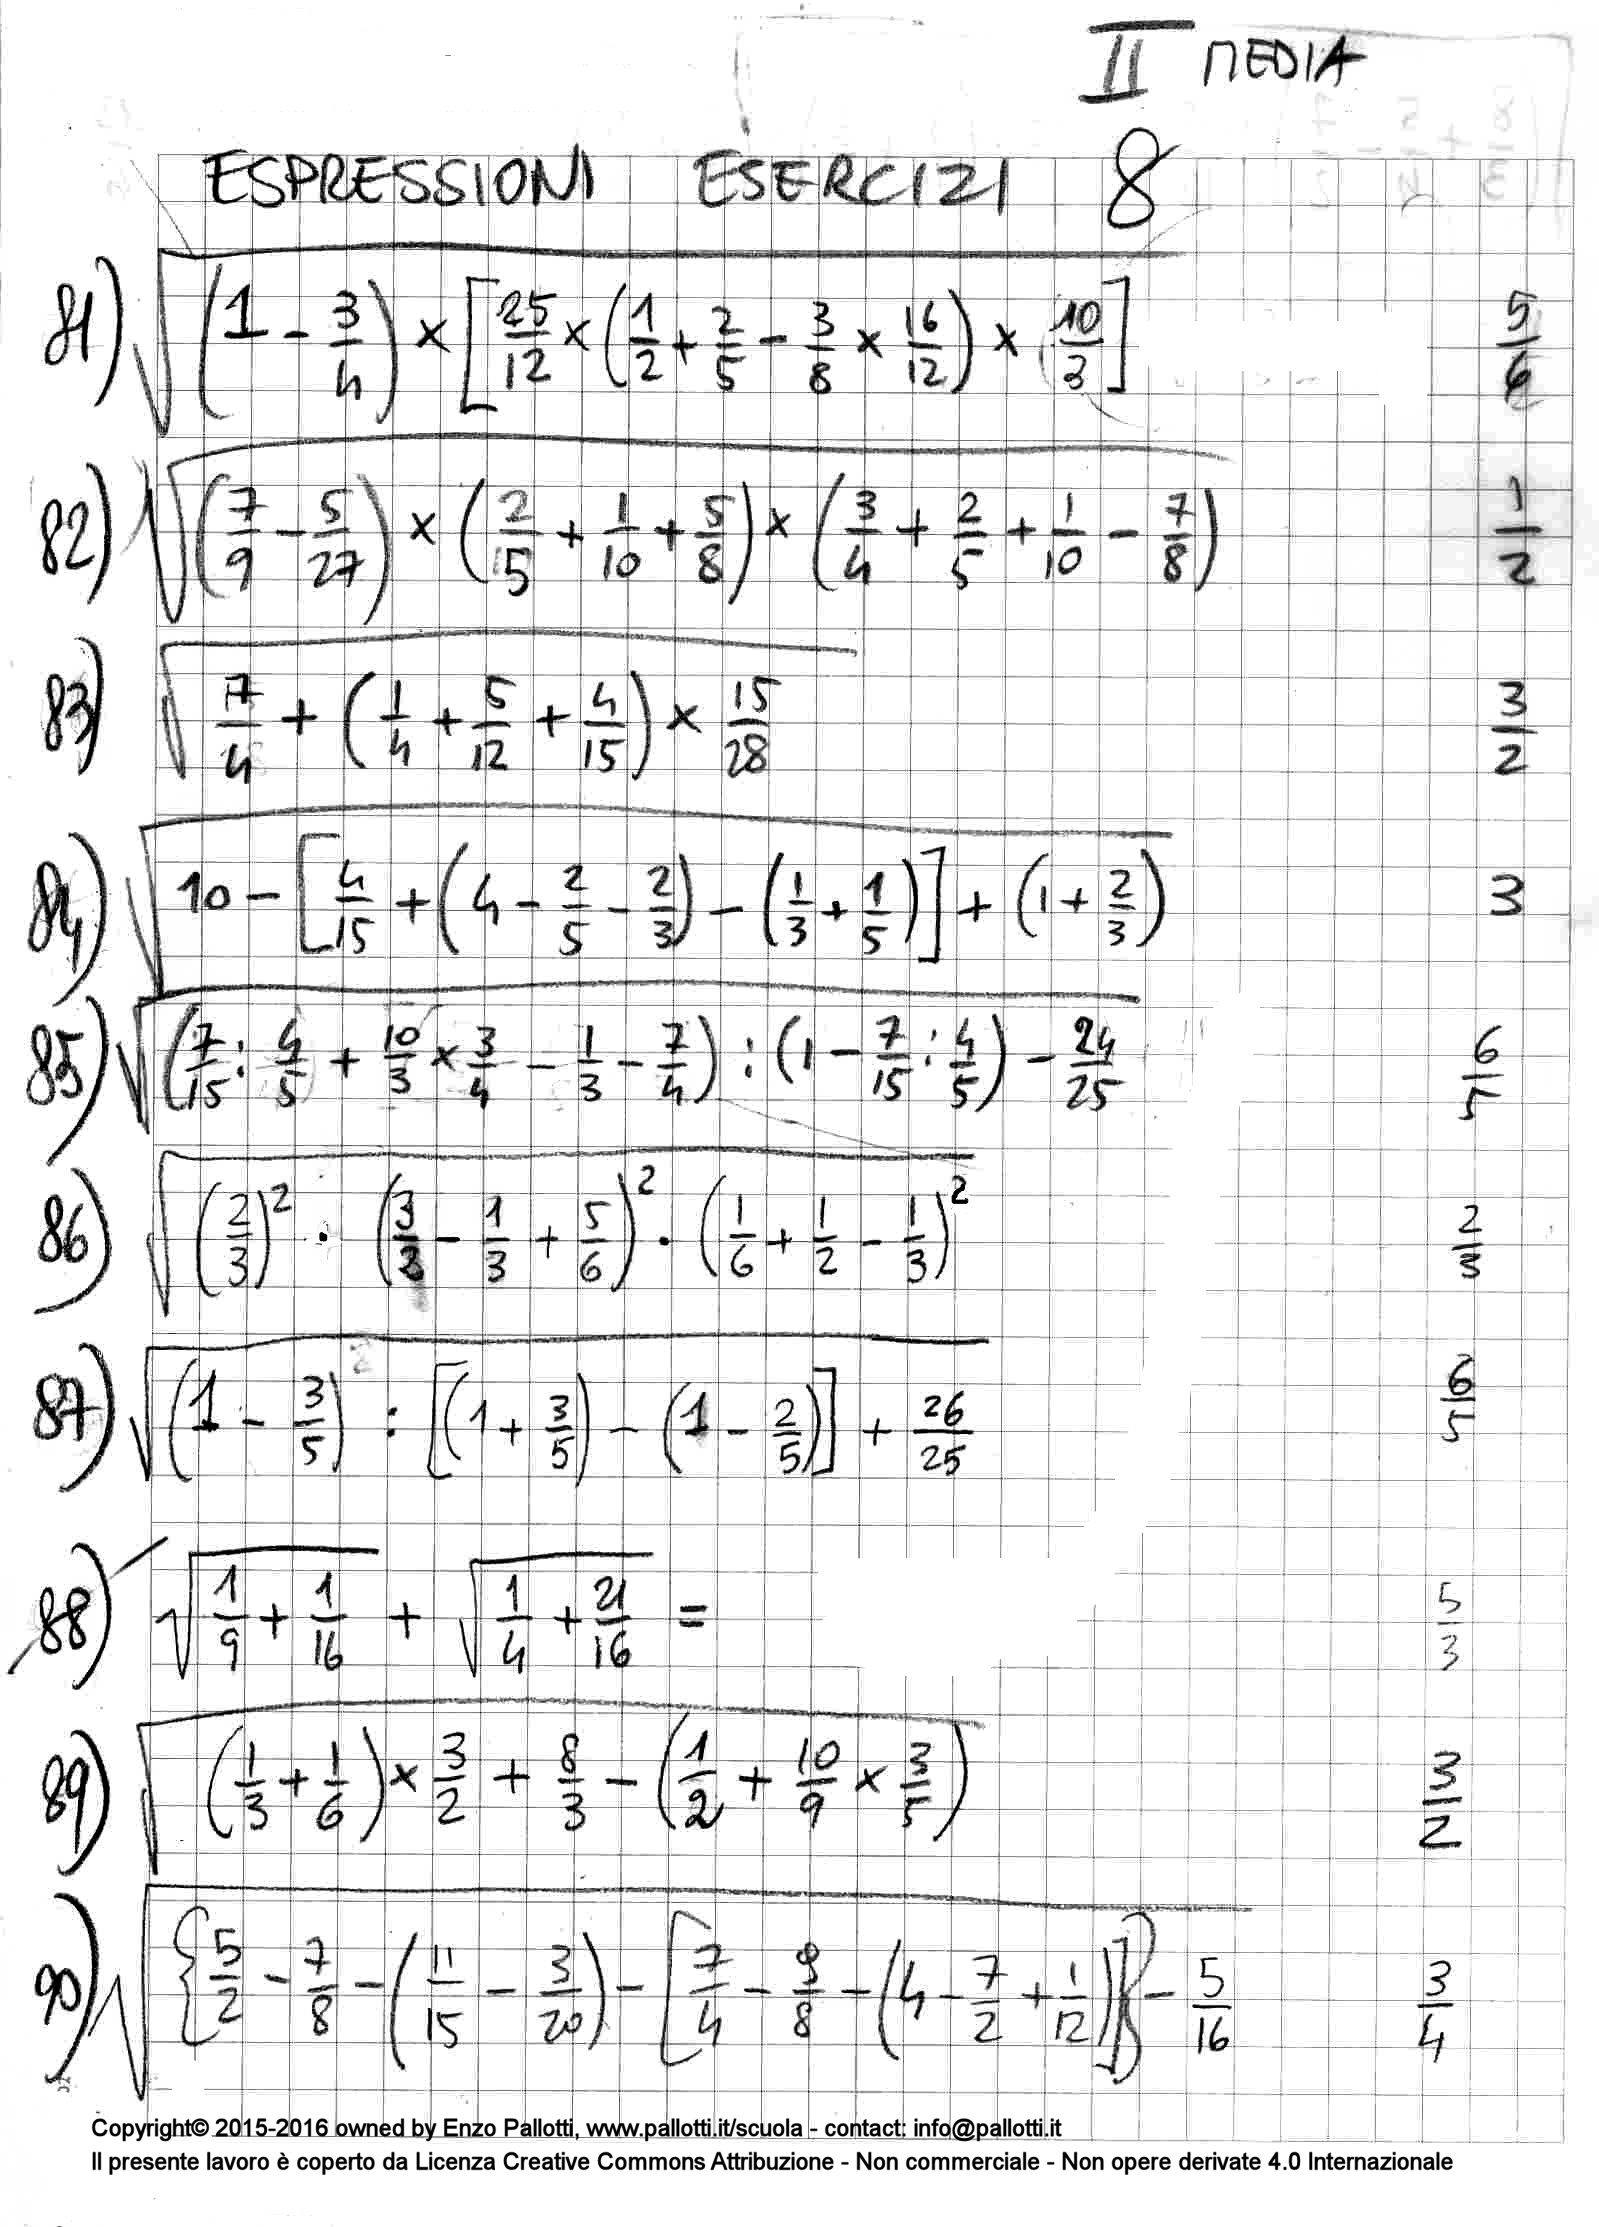 II MEDIA
ESPRESSIONI ESERCIZI 8
81) √((1 - 3/4) × [25/12 × (1/2 + 2/5 - 3/8 × 16/12) × 10/3]) 5/6
82) √((7/9 - 5/27) × (2/15 + 1/10 + 5/8) × (3/4 + 2/5 + 1/10 - 7/8)) 1/2
83) √(7/4 + (1/4 + 5/12 + 4/15) × 15/28) 3/2
84) √(10 - [4/15 + (4 - 2/5 - 2/3) - (1/3 + 1/5)] + (1 + 2/3)) 3
85) √((7/15 : 4/5 + 10/3 × 3/4 - 1/3 - 7/4) : (1 - 7/15 : 4/5) - 24/25) 6/5
86) √((2/3)² · (3/2 - 1/3 + 5/6)² · (1/6 + 1/2 - 1/3)²) 2/3
87) √((1 - 3/5) : [(1 + 3/5) - (1 - 2/5)] + 26/25) 6/5
88) √(1/9 + 1/16) + √(1/4 + 21/16) = 5/3
89) √((1/3 + 1/6) × 3/2 + 8/3 - (1/2 + 10/9 × 3/5)) 3/2
90) √({5/2 - 7/8 - (11/15 - 3/20) - [7/4 - 9/8 - (4 - 7/2 + 1/12)]} - 5/16) 3/4
Copyright© 2015-2016 owned by Enzo Pallotti, www.pallotti.it/scuola - contact: info@pallotti.it
Il presente lavoro è coperto da Licenza Creative Commons Attribuzione - Non commerciale - Non opere derivate 4.0 Internazionale